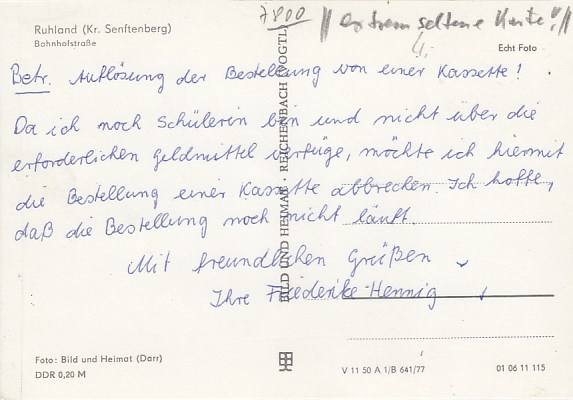 Ruhland (Kr. Senftenberg)
Bahnhofstraße
7800 || extrem seltene Karte! ||
4,-
Echt Foto
Betr. Auflösung der Bestellung von einer Kassette!
Da ich noch Schülerin bin und nicht über die
erforderlichen Geldmittel verfüge, möchte ich hiermit
die Bestellung einer Kassette abbrechen. Ich hoffe,
daß die Bestellung noch nicht läuft.
Mit freundlichen Grüßen
Ihre Friederike Hennig
BILD UND HEIMAT · REICHENBACH (VOGTL)
Foto: Bild und Heimat (Darr)
DDR 0,20 M
V 11 50 A 1/B 641/77
01 06 11 115